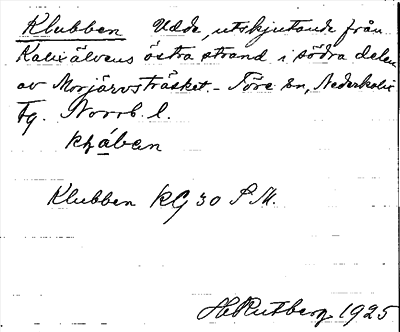 Klubben Udde, utskjutande från
Kalixälvens östra strand i södra delen
av Morjärvsträsket – Töre sn, Nederkalix
tg. Norrb. l.
Klubben KG 30 S M.
H Rutberg 1925